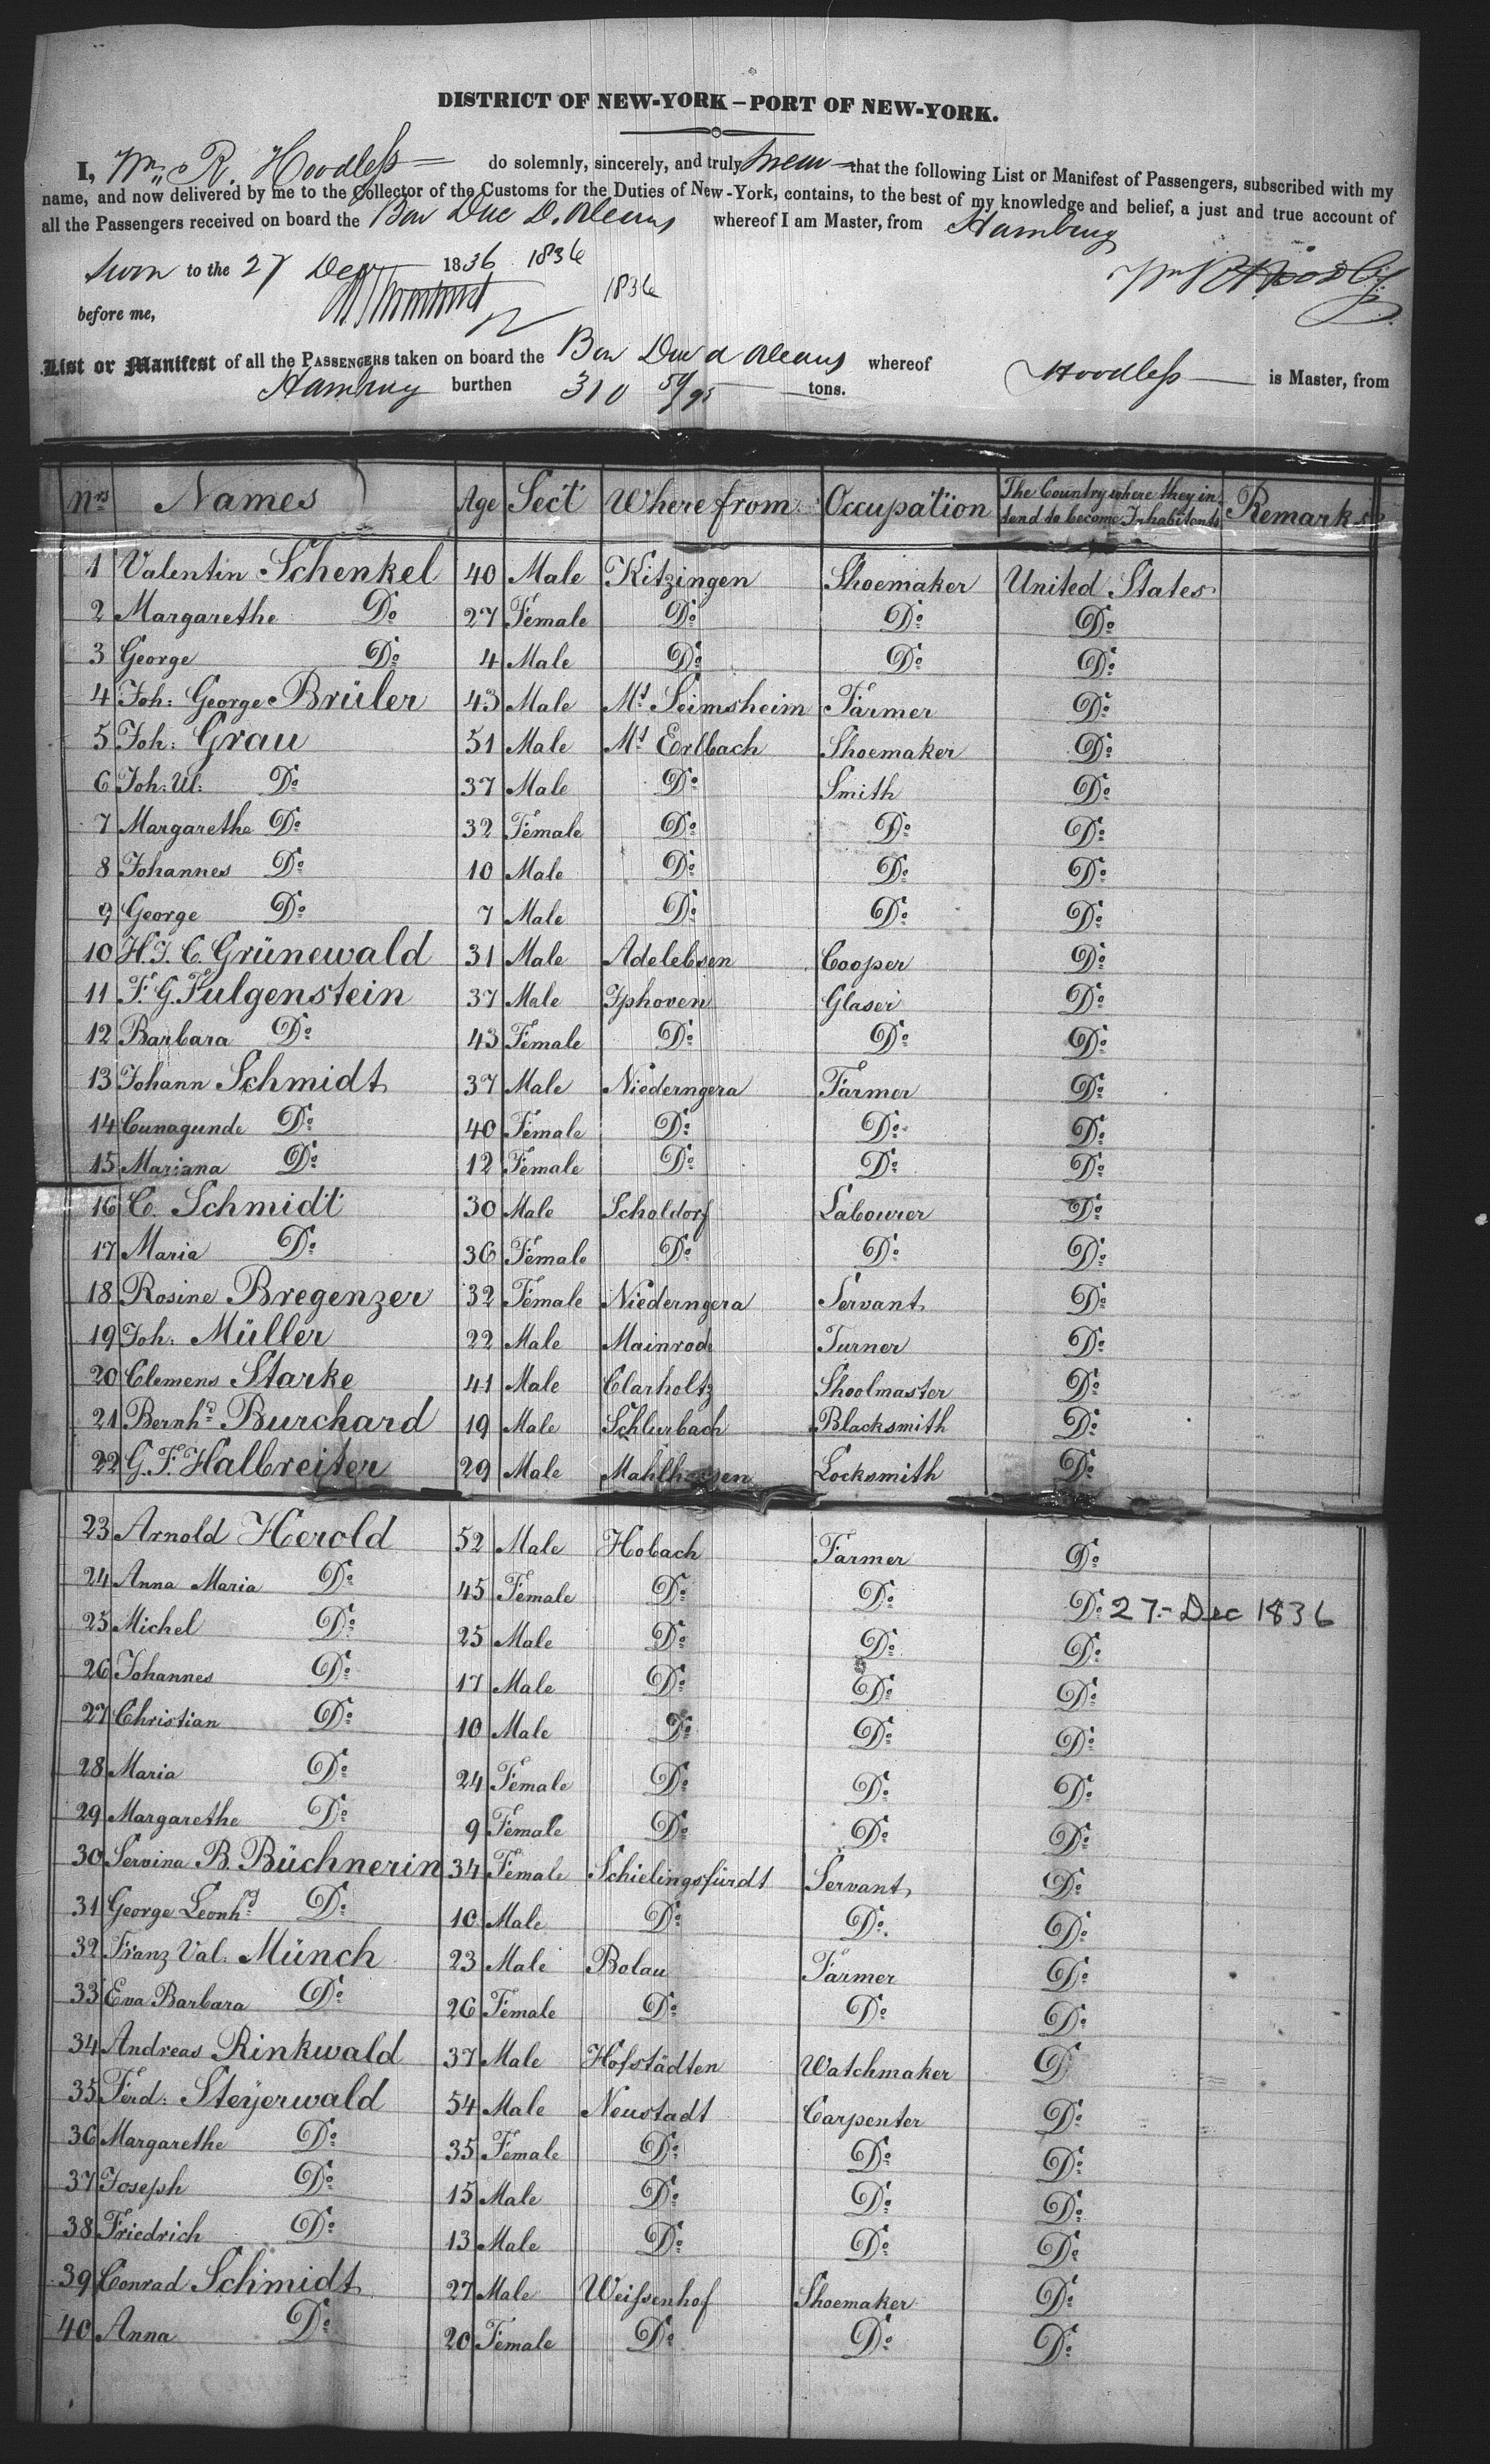 DISTRICT OF NEW-YORK – PORT OF NEW-YORK.
I, Wm. R. Hoodless do solemnly, sincerely, and truly swear that the following List or Manifest of Passengers, subscribed with my
name, and now delivered by me to the Collector of the Customs for the Duties of New-York, contains, to the best of my knowledge and belief, a just and true account of
all the Passengers received on board the Bar Duc D. Orleans whereof I am Master, from Hamburg
Sworn to the 27 Dec 1836 1836
before me, 1836
List or Manifest of all the PASSENGERS taken on board the Bar Duc d Orleans whereof Hoodless is Master, from
Hamburg burthen 310 59/95 tons.
Nrs Names Age Sect Where from Occupation The Country where they in- tend to become Inhabitants Remarks
1 Valentin Schenkel 40 Male Kitzingen Shoemaker United States
2 Margarethe Do 27 Female Do Do Do
3 George Do 4 Male Do Do Do
4 Joh: George Brüler 43 Male Mt Seimsheim Farmer Do
5 Joh: Grau 51 Male Mt Erlbach Shoemaker Do
6 Joh: Ul: Do 37 Male Do Smith Do
7 Margarethe Do 32 Female Do Do Do
8 Johannes Do 10 Male Do Do Do
9 George Do 7 Male Do Do Do
10 H. J. C. Grünewald 31 Male Adelebsen Cooper Do
11 F. G. Fulgenstein 37 Male Iphoven Glaser Do
12 Barbara Do 43 Female Do Do Do
13 Johann Schmidt 37 Male Niederngera Farmer Do
14 Cunagunde Do 40 Female Do Do Do
15 Mariana Do 12 Female Do Do Do
16 C. Schmidt 30 Male Scholdorf Labourer Do
17 Maria Do 36 Female Do Do Do
18 Rosine Bregenzer 32 Female Niederngera Servant Do
19 Joh: Müller 22 Male Mainrode Turner Do
20 Clemens Starke 41 Male Clarholtz Shoolmaster Do
21 Bernhd Burchard 19 Male Schlurbach Blacksmith Do
22 G. F. Halbreiter 29 Male Locksmith Do
23 Arnold Herold 52 Male Hobach Farmer Do
24 Anna Maria Do 45 Female Do Do Do 27- Dec 1836
25 Michel Do 25 Male Do Do Do
26 Johannes Do 17 Male Do Do Do
27 Christian Do 10 Male Do Do Do
28 Maria Do 24 Female Do Do Do
29 Margarethe Do 9 Female Do Do Do
30 Servina B. Büchnerin 34 Female Schielingsfürdt Servant Do
31 George Leonhd Do 10 Male Do Do Do
32 Franz Val. Münch 23 Male Bolau Farmer Do
33 Eva Barbara Do 26 Female Do Do Do
34 Andreas Rinkwald 37 Male Hofstädten Watchmaker Do
35 Ferd: Steÿerwald 54 Male Neustadt Carpenter Do
36 Margarethe Do 35 Female Do Do Do
37 Joseph Do 15 Male Do Do Do
38 Friedrich Do 13 Male Do Do Do
39 Conrad Schmidt 27 Male Weißenhof Shoemaker Do
40 Anna Do 20 Female Do Do Do